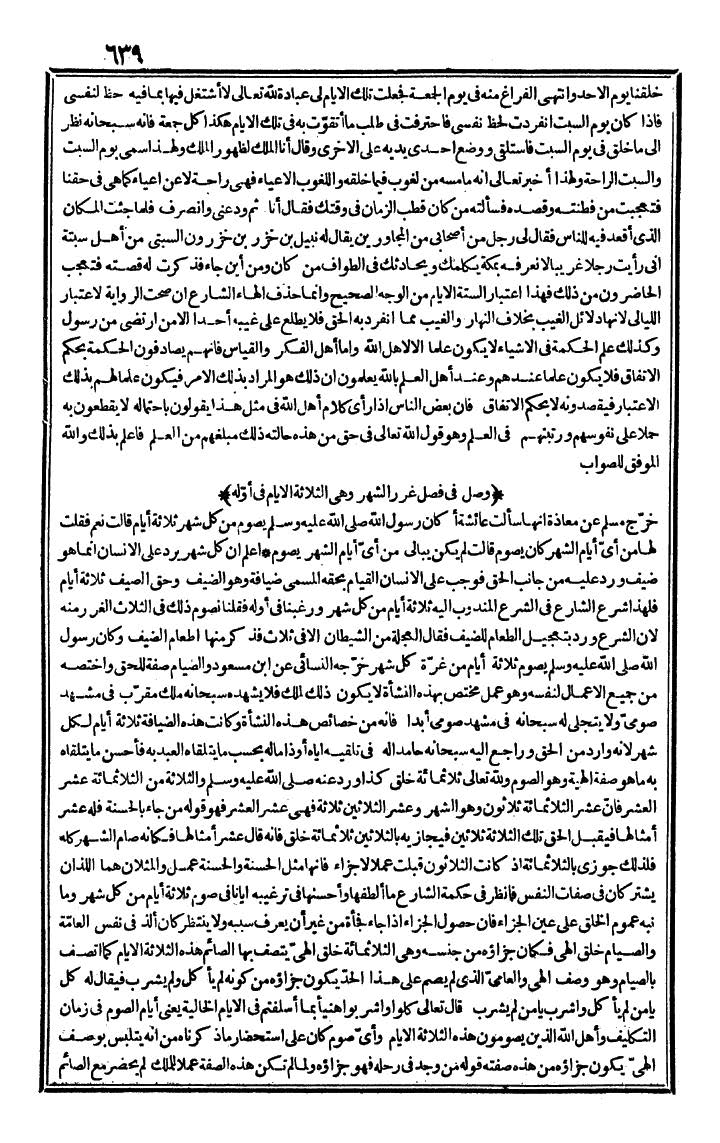 ٦٣٩
خلقنا يوم الاحد وانتهى الفراغ منه فى يوم الجمعة فجعلت تلك الايام لى عبادة لله تعالى لا أشتغل فيها بما فيه حظ لنفسى
فاذا كان يوم السبت انفردت لحظ نفسى فاحترفت فى طلب ما أتقوّت به فى تلك الايام هكذا كل جمعة فانه سبحانه نظر
الى ما خلق فى يوم السبت فاستلقى ووضع احدى يديه على الاخرى وقال أنا الملك لظهور الملك ولهذا سمى يوم السبت
والسبت الراحة ولهذا أخبر تعالى انه ما مسه من لغوب فيما خلقه واللغوب الاعياء فهى راحة لا عن اعياء كما هى فى حقنا
فتعجبت من فطنته وقصده فسألته من كان قطب الزمان فى وقتك فقال أنا ثم ودعنى وانصرف فلما جئت المكان
الذى أقعد فيه للناس فقال لى رجل من أصحابى من المجاورين يقال له نبيل بن خزر بن خزرون السبتى من أهل سبتة
انى رأيت رجلا غريبا لا نعرفه بمكة يكلمك ويحادثك فى الطواف من كان ومن أين جاء فذكرت له قصته فتعجب
الحاضرون من ذلك فهذا اعتبار الستة الايام من الوجه الصحيح وانما حذف الهاء الشارع ان صحت الرواية لاعتبار
الليالى لانها دلائل الغيب بخلاف النهار والغيب مما انفرد به الحق فلا يطلع على غيبه أحدا الا من ارتضى من رسول
وكذلك علم الحكمة فى الاشياء لا يكون علما الا لاهل الله واما أهل الفكر والقياس فانهم يصادفون الحكمة بحكم
الاتفاق فلا يكون علما عندهم وعند أهل العلم بالله يعلمون ان ذلك هو المراد بذلك الامر فيكون علما لهم بذلك
الاعتبار فيقصدونه لا بحكم الاتفاق فان بعض الناس اذا رأى كلام أهل الله فى مثل هذا يقولون باحتماله لا يقطعون به
حملا على نفوسهم ورتبتهم فى العلم وهو قول الله تعالى فى حق من هذه حالته ذلك مبلغهم من العلم فاعلم بذلك والله
الموفق للصواب
﴿وصل فى فصل غرر الشهر وهى الثلاثة الايام فى أوّله﴾
خرّج مسلم عن معاذة انها سألت عائشة أ كان رسول الله صلى الله عليه وسلم يصوم من كل شهر ثلاثة أيام قالت نعم فقلت
لها من أىّ أيام الشهر كان يصوم قالت لم يكن يبالى من أىّ أيام الشهر يصوم * اعلم ان كل شهر يرد على الانسان انما هو
ضيف ورد عليه من جانب الحق فوجب على الانسان القيام بحقه المسمى ضيافة وهو الضيف وحق الضيف ثلاثة أيام
فلهذا شرع الشارع فى الشرع المندوب اليه ثلاثة أيام من كل شهر ورغبنا فى أوله فقلنا نصوم ذلك فى الثلاث الغرر منه
لان الشرع ورد بتعجيل الطعام للضيف فقال العجلة من الشيطان الا فى ثلاث فذكر منها اطعام الضيف وكان رسول
الله صلى الله عليه وسلم يصوم ثلاثة أيام من غرّة كل شهر خرّجه النسائى عن ابن مسعود والصيام صفة للحق واختصه
من جميع الاعمال لنفسه وهو عمل مختص بهذه النشأة لا يكون ذلك لملك فلا يشهده سبحانه ملك مقرّب فى مشهد
صومىّ ولا يتجلى له سبحانه فى مشهد صومى أبدا فانه من خصائص هذه النشأة وكانت هذه الضيافة ثلاثة أيام لكل
شهر لانه وارد من الحق وراجع اليه سبحانه حامد اله فى تلقيه اياه أو ذاما له بحسب ما يتلقاه العبد به فأحسن ما يتلقاه
به ما هو صفة الهية وهو الصوم ولله تعالى ثلاثمائة خلق كذا ورد عنه صلى الله عليه وسلم والثلاثة من الثلاثمائة عشر
العشر فانّ عشر الثلاثمائة ثلاثون وهو الشهر وعشر الثلاثين ثلاثة فهى عشر العشر فهو قوله من جاء بالحسنة فله عشر
أمثالها فيقبل الحق تلك الثلاثة ثلاثين فيجازيه بالثلاثين ثلاثمائة خلق فانه قال عشر أمثالها فكانه صام الشهر كله
فلذلك جوزى بالثلاثمائة اذ كانت الثلاثون قبلت عملا لا جزاء فانها مثل الحسنة والحسنة عمل والمثلان هما اللذان
يشتركان فى صفات النفس فانظر فى حكمة الشارع ما ألطفها وأحسنها فى ترغيبه ايانا فى صوم ثلاثة أيام من كل شهر وما
نبه عموم الخلق على عين الجزاء فان حصول الجزاء اذا جاء فجأة من غير أن يعرف سببه ولا ينتظر كان ألذ فى نفس العامّة
والصيام خلق الهى فكان جزاؤه من جنسه وهى الثلاثمائة خلق الهىّ يتصف بها الصائم هذه الثلاثة الايام كما اتصف
بالصيام وهو وصف الهى والعامىّ الذى لم يصم على هذا الحدّ يكون جزاؤه من كونه لم يأكل ولم يشرب فيقال له كل
يا من لم يأكل واشرب يا من لم يشرب قال تعالى كلوا واشربوا هنيأ بما أسلفتم فى الايام الخالية يعنى أيام الصوم فى زمان
التكليف وأهل الله الذين يصومون هذه الثلاثة الايام وأىّ صوم كان على استحضار ما ذكرناه من انه يتلبس بوصف
الهىّ يكون جزاؤه من هذه صفته قوله من وجد فى رحله فهو جزاؤه ولما لم تكن هذه الصفة عملا للملك لم يحضر مع الصائم